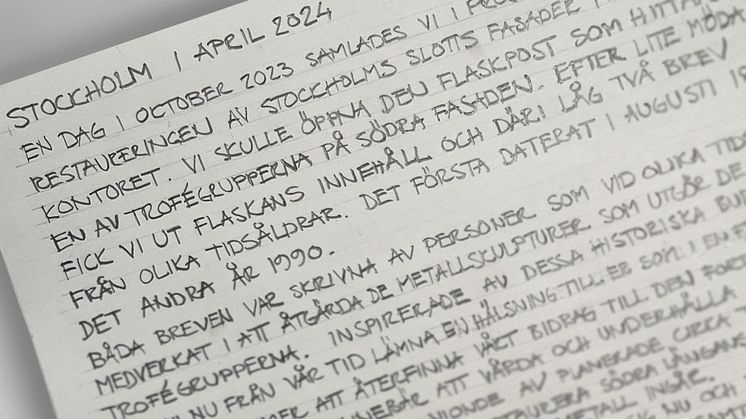 STOCKHOLM I APRIL 2024
EN DAG I OCTOBER 2023 SAMLADES VI I
RESTAURERINGEN AV STOCKHOLMS SLOTTS FASADER
KONTORET. VI SKULLE ÖPPNA DEN FLASKPOST SOM HITTATS
EN AV TROFÉGRUPPERNA PÅ SÖDRA FASADEN. EFTER LITE MÖDA
FICK VI UT FLASKANS INNEHÅLL OCH DÄRI LÅG TVÅ BREV
FRÅN OLIKA TIDSÅLDRAR. DET FÖRSTA DATERAT I AUGUSTI
DET ANDRA ÅR 1990.
BÅDA BREVEN VAR SKRIVNA AV PERSONER SOM VID OLIKA
MEDVERKAT I ATT ÅTGÄRDA DE METALLSKULPTURER SOM UTGÖR DE
TROFÉGRUPPERNA. INSPIRERADE AV DESSA HISTORISKA
NU FRÅN VÅR TID LÄMNA EN HÄLSNING TILL ER SOM I EN
ATT ÅTERFINNA VÅRT BIDRAG TILL DEN
ATT VÅRDA OCH UNDERHÅLLA
AV PLANERADE CIRKA
SÖDRA
INGÅR.
NU OCH